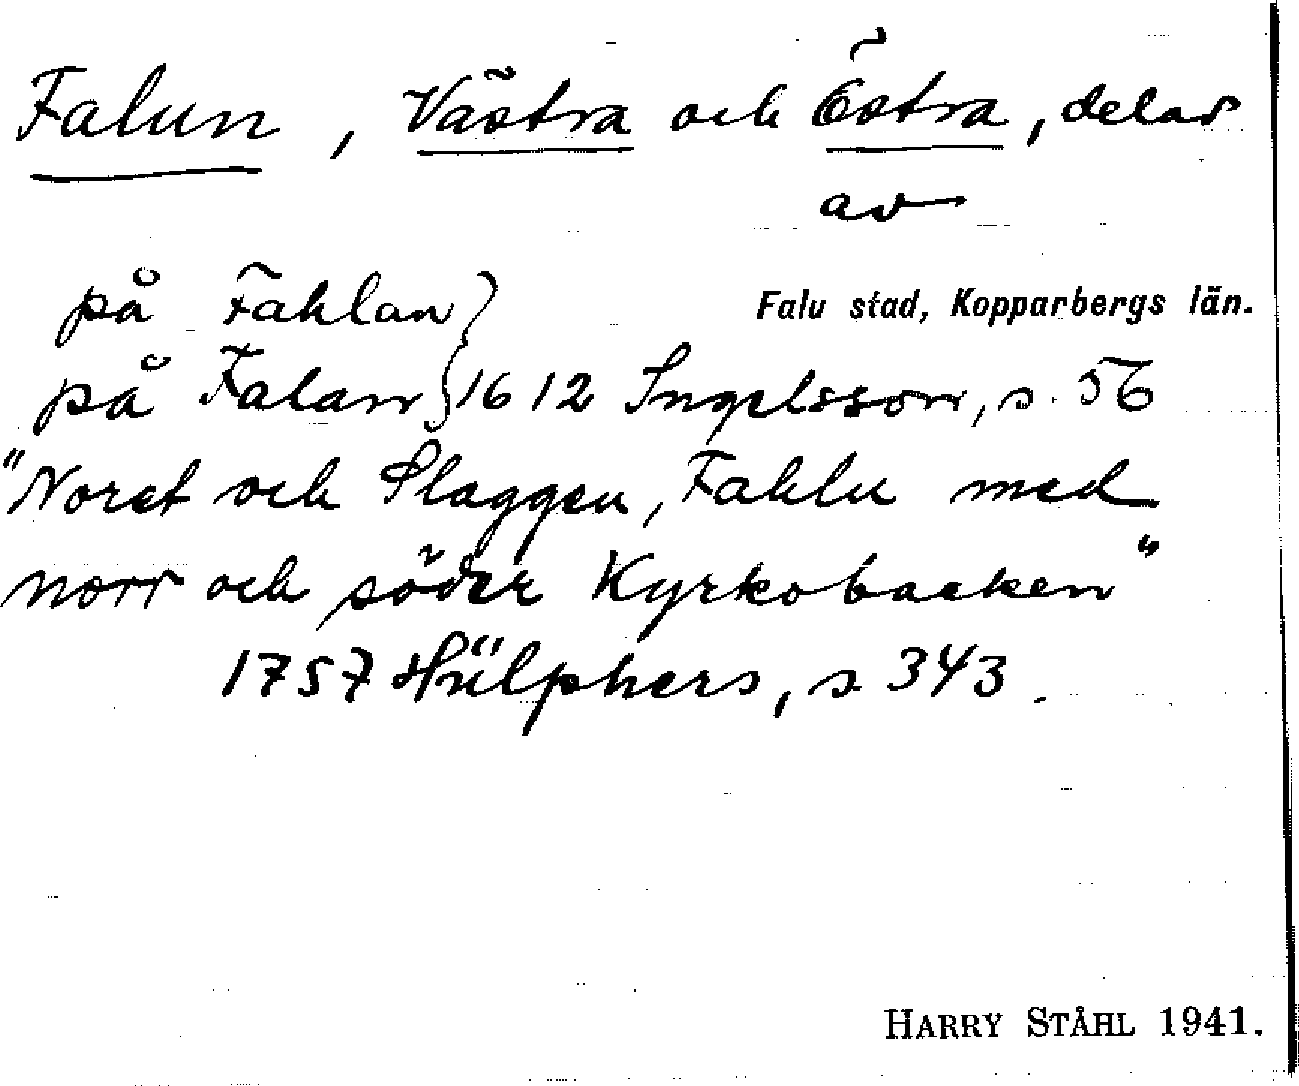 Falun, Västra och Östra, delar
av
Falu stad, Kopparbergs län.
på Fahlan }
på Falan } 1612 Ingelsson, s. 56
"Noret och Slaggen, Fahlu med
norr och söder Kyrkobacken"
1757 Hülphers, s 343.
HARRY STÅHL 1941.